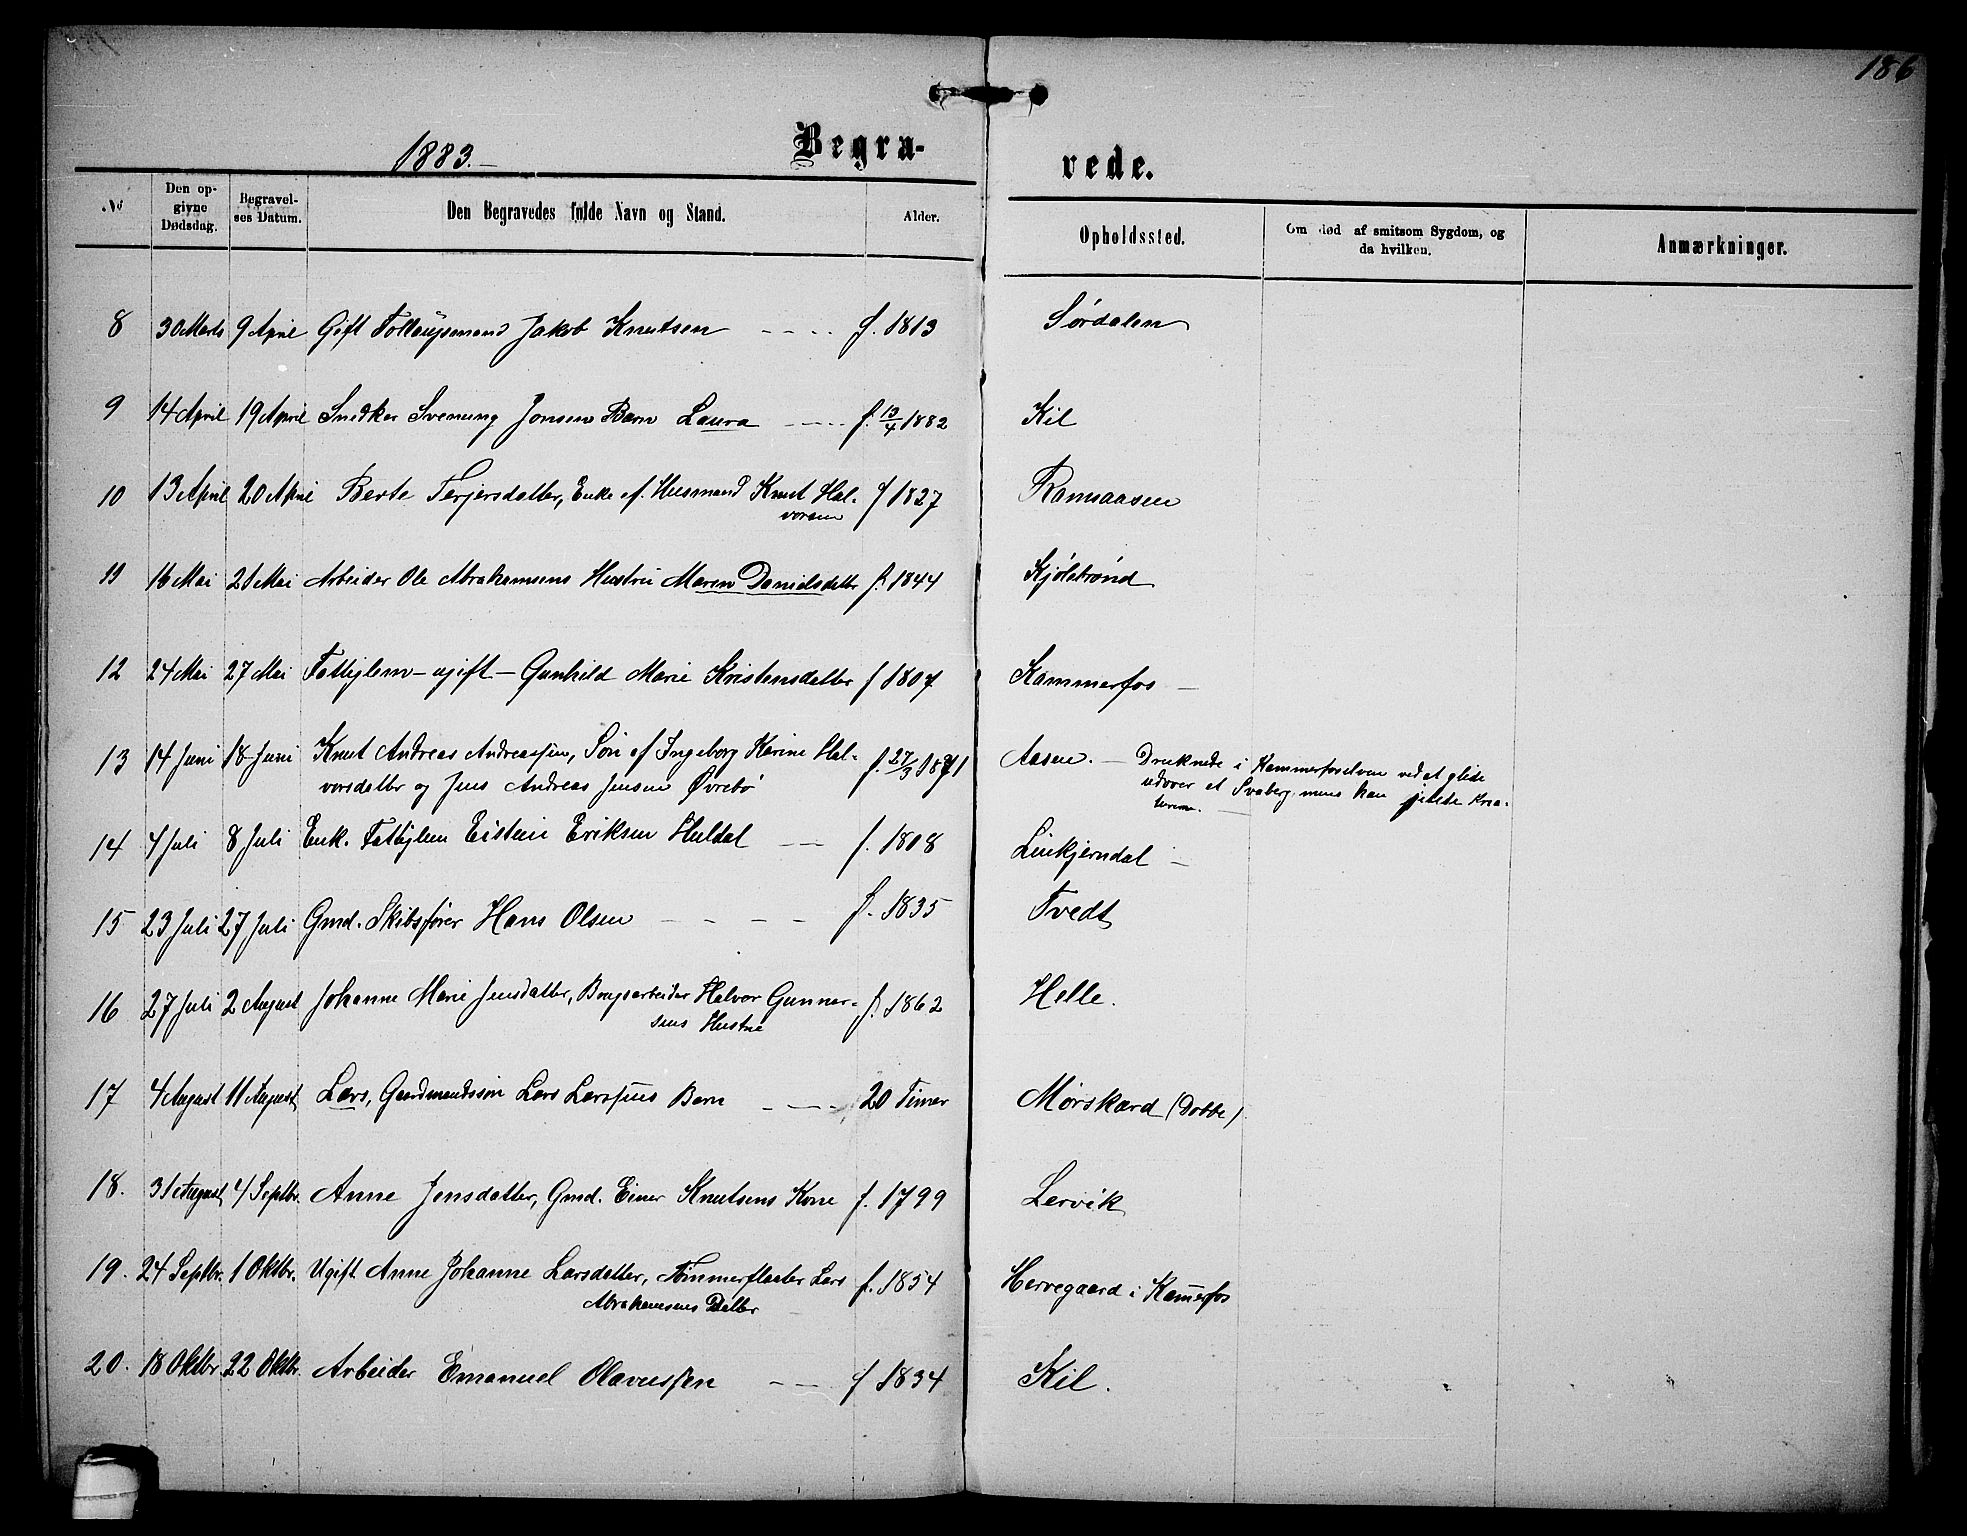 186
1883.
Begra-
vede.
No
Den op-
givne
Dødsdag.
Begravel-
ses Datum.
Den Begravedes fulde Navn og Stand.
Alder.
Opholdssted.
Om død af smitsom Sygdom, og
da hvilken.
Anmærkninger.
8 30 Marts 9 April Gift Jakob Knutsen f. 1813 Sørdalen
9 14 April 19 April Snedker Svenung Jonsens Barn Laura f. 13/4 1882 Kil
10 13 April 20 April Berte Terjersdatter, Enke af Husmand Knut Hal- f 1827 Ramsaasen
vorsen
11 16 Mai 21 Mai Arbeider Ole Abrahamsens Hustru Maren Danielsdatter f. 1844 Kjølebrønd
12 24 Mai 27 Mai Fattiglem - ugift - Gunhild Marie Kristensdatter f 1807 Kammerfos
13 14 Juni 18 Juni Knut Andreas Andreassen, Søn af Ingeborg Karine Hal- f. 27/3 1871 Aasen. - Druknede i Kammerfoselven ved at glide
vorsdatter og Jens Andreas Jensen Øvrebø udover et Svaberg, mens han gjætede Krea-
turene.
14 4 Juli 8 Juli Enk. Fattiglem Eistein Eriksen Huldal f. 1808 Linkjerndal
15 23 Juli 27 Juli Gmd. Skibsfører Hans Olsen f. 1835 Tvedt
16 27 Juli 2 August Johanne Marie Jensdatter, Brugsarbeider Halvor Gunner- f. 1862 Helle.
sens Hustru
17 4 August 11 August Lars, Gaardmandssøn Lars Larssens Barn 20 Timer Mørskard (Dobbe)
18. 31 August 4 Septbr. Anne Jensdatter, Gmd. Einer Knutsens Kone f. 1799 Lervik
19. 24 Septbr. 1 Oktbr. Ugift Anne Johanne Larsdatter, Tømmerfløter Lars f. 1854 Hervegaard i Kam̅erfos
Abrahamsens Datter
20. 18 Oktbr. 22 Oktbr. Arbeider Emanuel Olavessen f 1834 Kil.